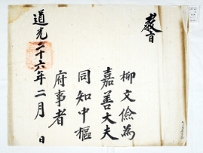 敎旨
柳文儉爲
嘉善大夫
同知中樞
府事者
道光二十六年二月 日